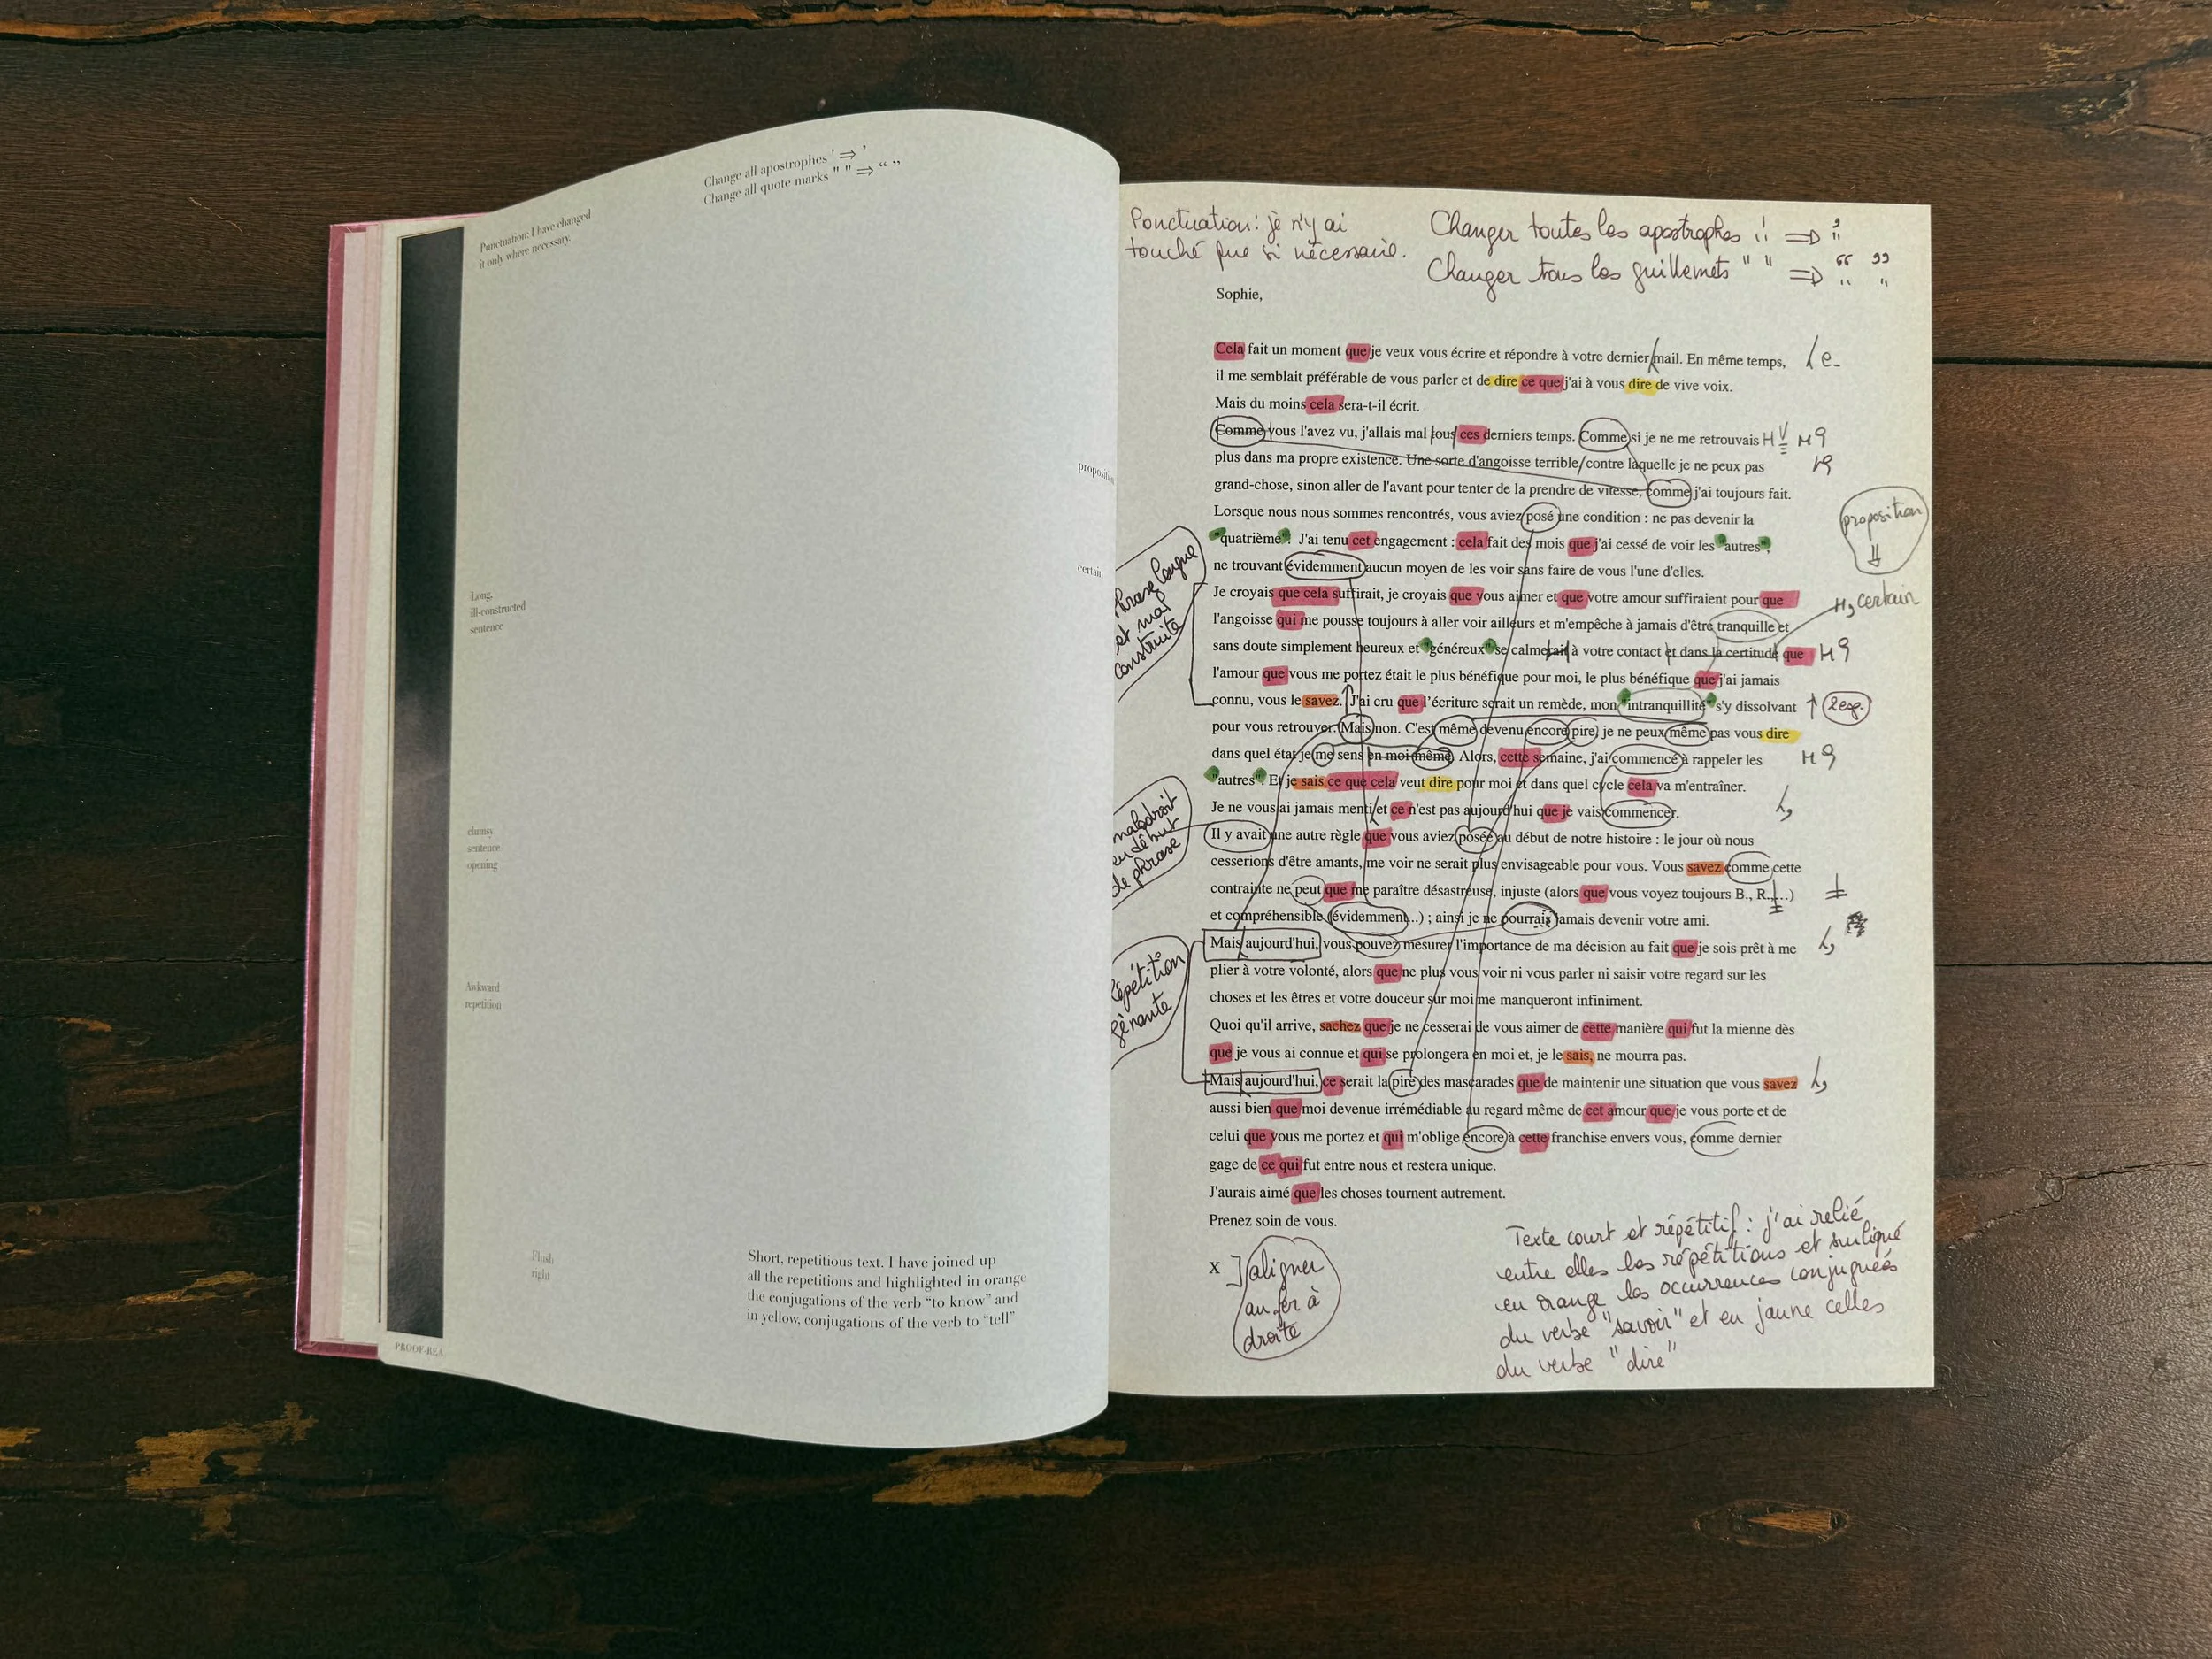 Change all apostrophes ' ⇒ ’
Change all quote marks " " ⇒ “ ”
Punctuation: I have changed
it only where necessary.
proposition
certain
Long,
ill-constructed
sentence
clumsy
sentence
opening
Awkward
repetition
Flush
right
Short, repetitious text. I have joined up
all the repetitions and highlighted in orange
the conjugations of the verb “to know” and
in yellow, conjugations of the verb to “tell”
PROOF-REA
Ponctuation: je n'y ai
touché que si nécessaire.
Changer toutes les apostrophes ' ⇒ ’
Changer tous les guillemets " " ⇒ “ ”
Sophie,
Cela fait un moment que je veux vous écrire et répondre à votre dernier mail. En même temps, e-
il me semblait préférable de vous parler et de dire ce que j'ai à vous dire de vive voix.
Mais du moins cela sera-t-il écrit.
Comme vous l'avez vu, j'allais mal tous ces derniers temps. Comme si je ne me retrouvais
plus dans ma propre existence. Une sorte d'angoisse terrible contre laquelle je ne peux pas
grand-chose, sinon aller de l'avant pour tenter de la prendre de vitesse, comme j'ai toujours fait.
Lorsque nous nous sommes rencontrés, vous aviez posé une condition : ne pas devenir la
proposition
"quatrième". J'ai tenu cet engagement : cela fait des mois que j'ai cessé de voir les "autres",
ne trouvant évidemment aucun moyen de les voir sans faire de vous l'une d'elles.
phrase longue
et mal
construite
Je croyais que cela suffirait, je croyais que vous aimer et que votre amour suffiraient pour que
certain
l'angoisse qui me pousse toujours à aller voir ailleurs et m'empêche à jamais d'être tranquille et
sans doute simplement heureux et "généreux" se calmerait à votre contact et dans la certitude que
l'amour que vous me portez était le plus bénéfique pour moi, le plus bénéfique que j'ai jamais
connu, vous le savez. J'ai cru que l'écriture serait un remède, mon "intranquillité" s'y dissolvant
2esp.
pour vous retrouver. Mais non. C'est même devenu encore pire, je ne peux même pas vous dire
dans quel état je me sens en moi-même. Alors, cette semaine, j'ai commencé à rappeler les
"autres". Et je sais ce que cela veut dire pour moi et dans quel cycle cela va m'entraîner.
Je ne vous ai jamais menti et ce n'est pas aujourd'hui que je vais commencer.
maladroit
en début
de phrase
Il y avait une autre règle que vous aviez posée au début de notre histoire : le jour où nous
cesserions d'être amants, me voir ne serait plus envisageable pour vous. Vous savez comme cette
contrainte ne peut que me paraître désastreuse, injuste (alors que vous voyez toujours B., R.,...)
et compréhensible (évidemment...) ; ainsi je ne pourrais jamais devenir votre ami.
Mais aujourd'hui, vous pouvez mesurer l'importance de ma décision au fait que je sois prêt à me
plier à votre volonté, alors que ne plus vous voir ni vous parler ni saisir votre regard sur les
choses et les êtres et votre douceur sur moi me manqueront infiniment.
répétition
gênante
Quoi qu'il arrive, sachez que je ne cesserai de vous aimer de cette manière qui fut la mienne dès
que je vous ai connue et qui se prolongera en moi et, je le sais, ne mourra pas.
Mais aujourd'hui, ce serait la pire des mascarades que de maintenir une situation que vous savez
aussi bien que moi devenue irrémédiable au regard même de cet amour que je vous porte et de
celui que vous me portez et qui m'oblige encore à cette franchise envers vous, comme dernier
gage de ce qui fut entre nous et restera unique.
J'aurais aimé que les choses tournent autrement.
Prenez soin de vous.
X
aligner
au fer à
droite
Texte court et répétitif : j'ai relié
entre elles les répétitions et surligné
en orange les occurrences conjuguées
du verbe "savoir" et en jaune celles
du verbe "dire"